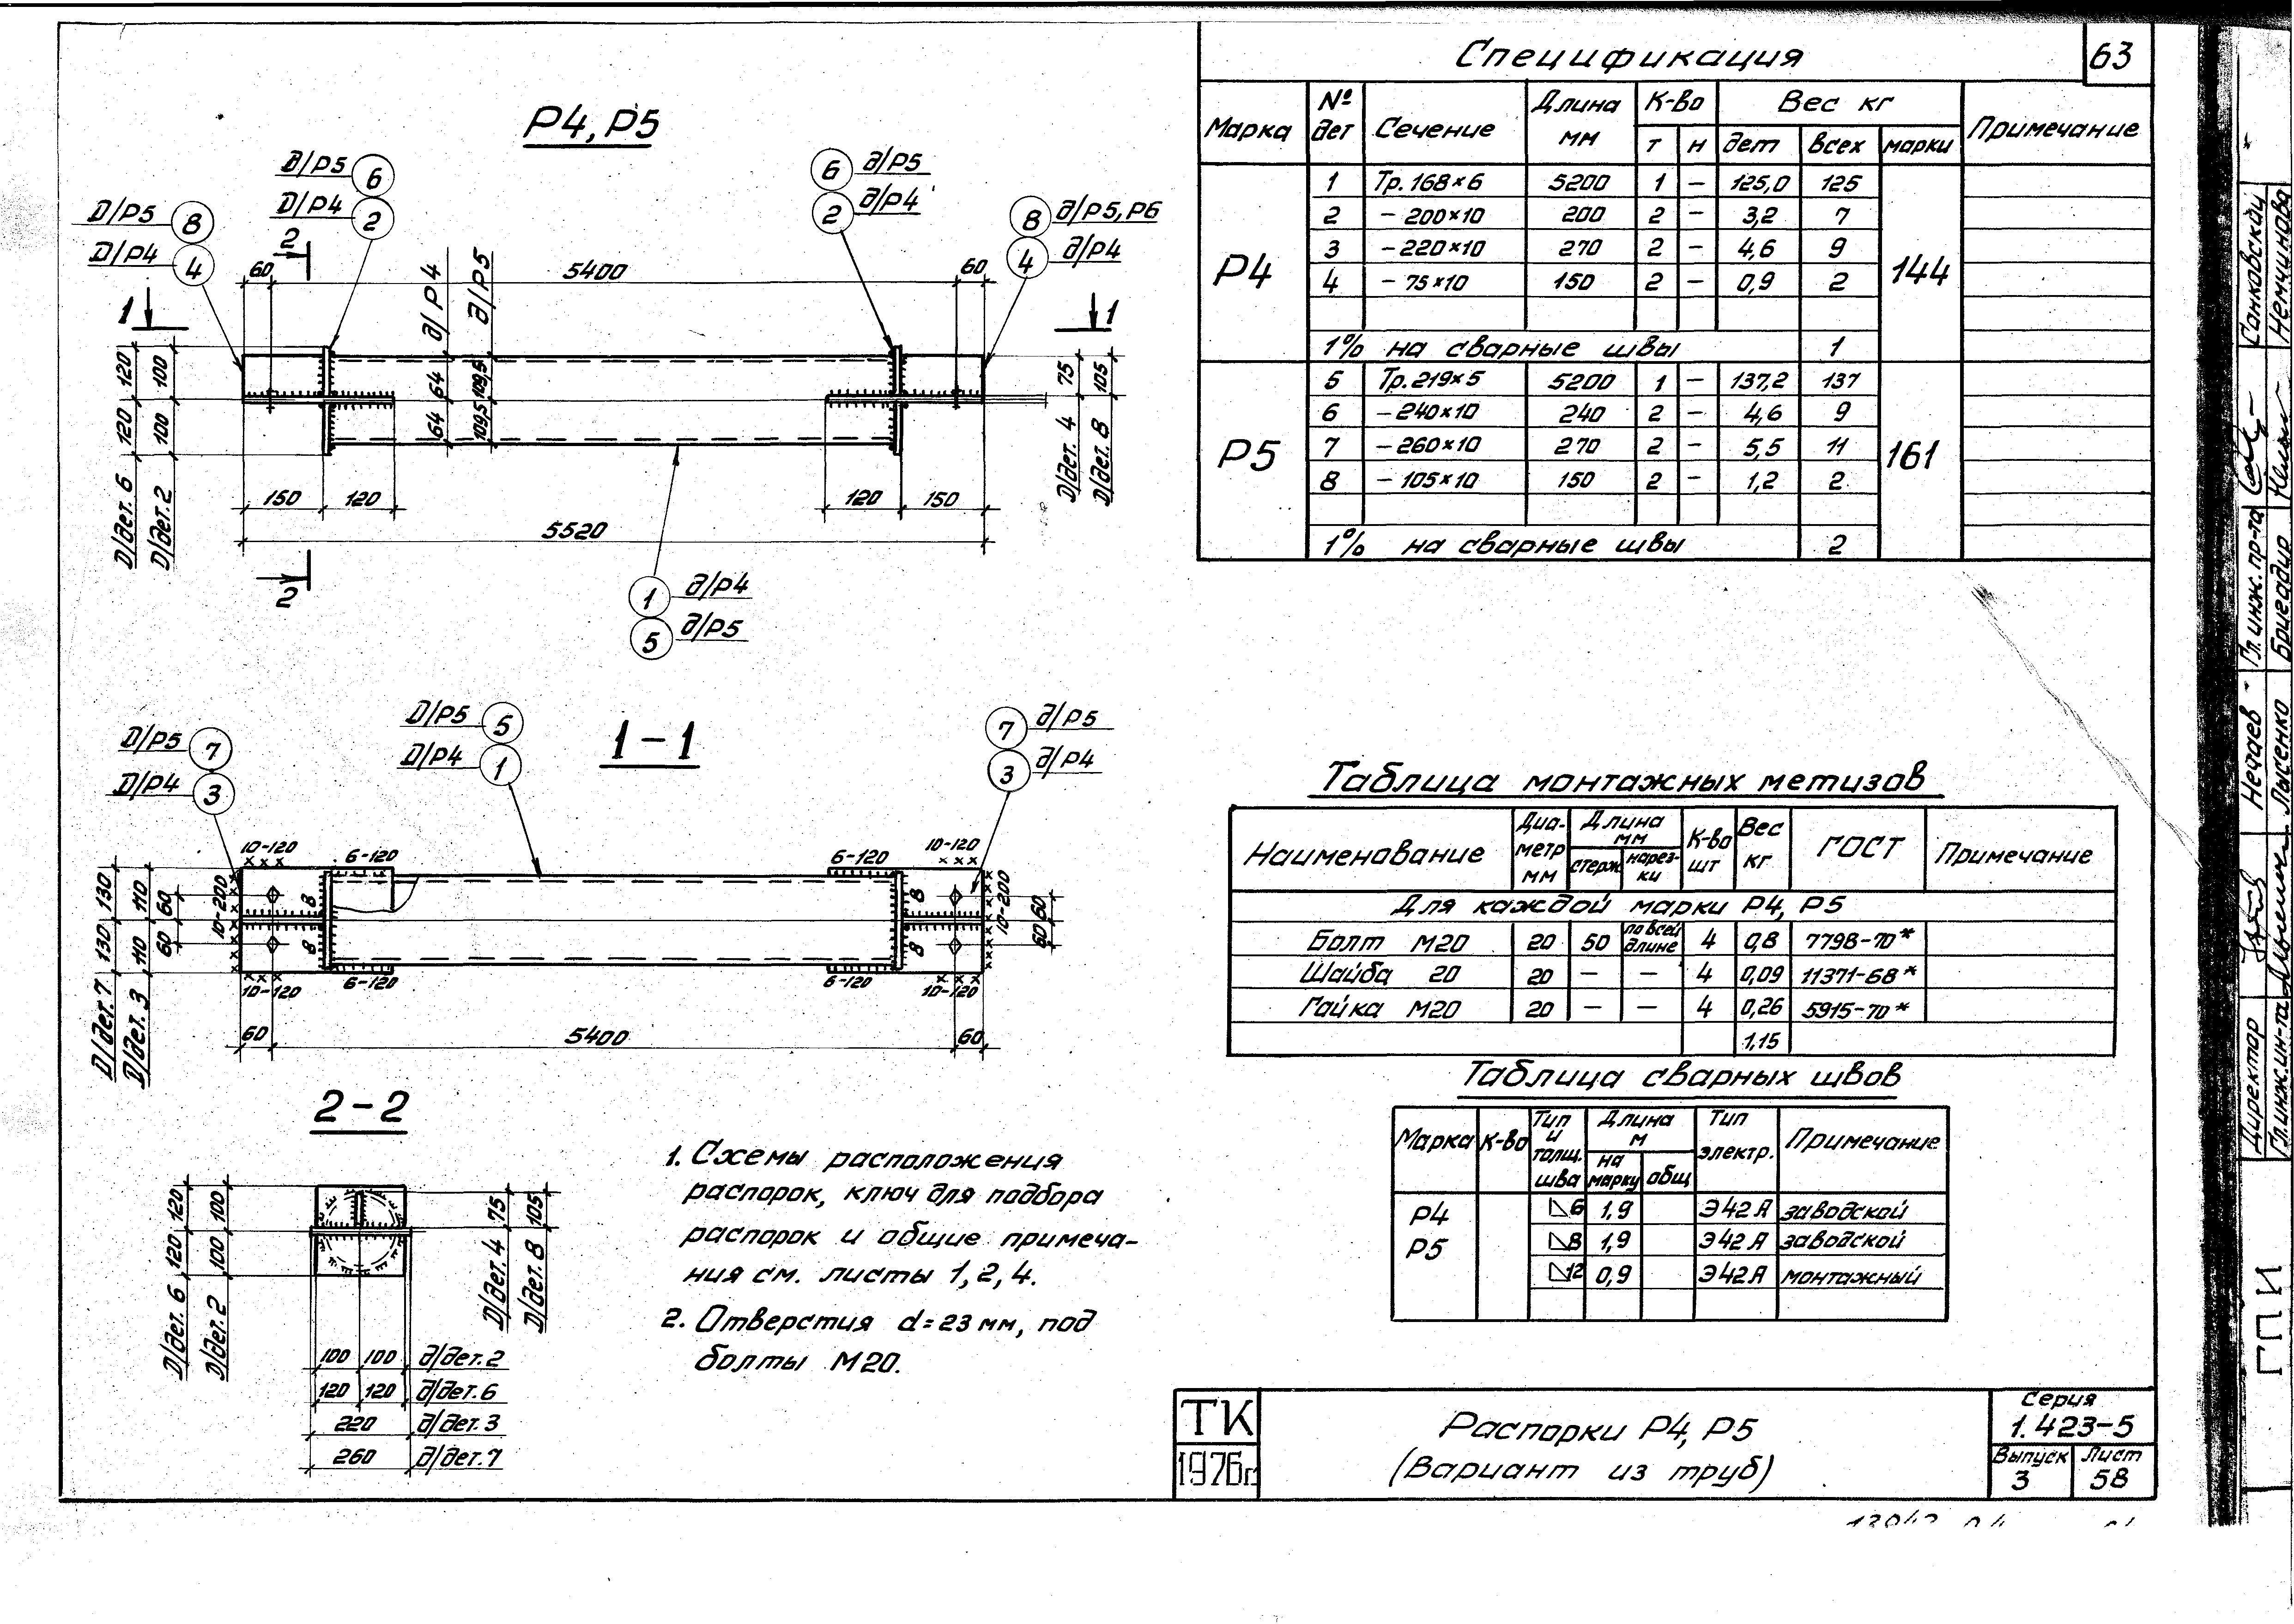 Спецификация
63
Марка № дет Сечение Длина мм К-во т н Вес кг дет всех марки Примечание
Р4
1 Тр. 168×6 5200 1 – 125,0 125
2 – 200×10 200 2 – 3,2 7
3 – 220×10 270 2 – 4,6 9
4 – 75×10 150 2 – 0,9 2
144
1% на сварные швы 1
Р5
5 Тр. 219×5 5200 1 – 137,2 137
6 – 240×10 240 2 – 4,6 9
7 – 260×10 270 2 – 5,5 11
8 – 105×10 150 2 – 1,2 2
161
1% на сварные швы 2
Р4, Р5
Д/Р5 6
Д/Р4 2
Д/Р5 8
Д/Р4 4
6 д/Р5
2 д/Р4
8 д/Р5, Р6
4 д/Р4
2
60 5400 60
д/Р4
д/Р5
1 1
120 100 64 109,5 75 105
120 100 64 109,5
Д/дет. 6
Д/дет. 2
Д/дет. 4
Д/дет. 8
150 120 120 150
5520
2
1 д/Р4
5 д/Р5
1-1
Д/Р5 7
Д/Р4 3
Д/Р5 5
Д/Р4 1
7 д/Р5
3 д/Р4
10-120 6-120 6-120 10-120
130 110 60 10-200 8 8 10-200 60
130 110 60 8 8 60
10-120 6-120 6-120 10-120
Д/дет. 7
Д/дет. 3
60 5400 60
2-2
120 100 75 105
120 100
Д/дет. 6
Д/дет. 2
Д/дет. 4
Д/дет. 8
100 100 д/дет. 2
120 120 д/дет. 6
220 д/дет. 3
260 д/дет. 7
1. Схемы расположения
распорок, ключ для подбора
распорок и общие примеча-
ния см. листы 1, 2, 4.
2. Отверстия d=23 мм, под
болты М20.
Таблица монтажных метизов
Наименование Диаметр мм Длина мм стерж. нарезки К-во шт Вес кг ГОСТ Примечание
Для каждой марки Р4, Р5
Болт М20 20 50 по всей длине 4 0,8 7798-70*
Шайба 20 20 – – 4 0,09 11371-68*
Гайка М20 20 – – 4 0,26 5915-70*
1,15
Таблица сварных швов
Марка К-во Тип и толщ. шва Длина м на марку общ Тип электр. Примечание
Р4
Р5
6 1,9 Э42А заводской
8 1,9 Э42А заводской
12 0,9 Э42А монтажный
ТК
1976г.
Распорки Р4, Р5
(Вариант из труб)
Серия
1.423-5
Выпуск 3
Лист 58
Санковский
Немчинова
Гл. инж. пр-та
Бригадир
Нечаев
Лысенко
Директор
Гл. инж. ин-та
ГПИ